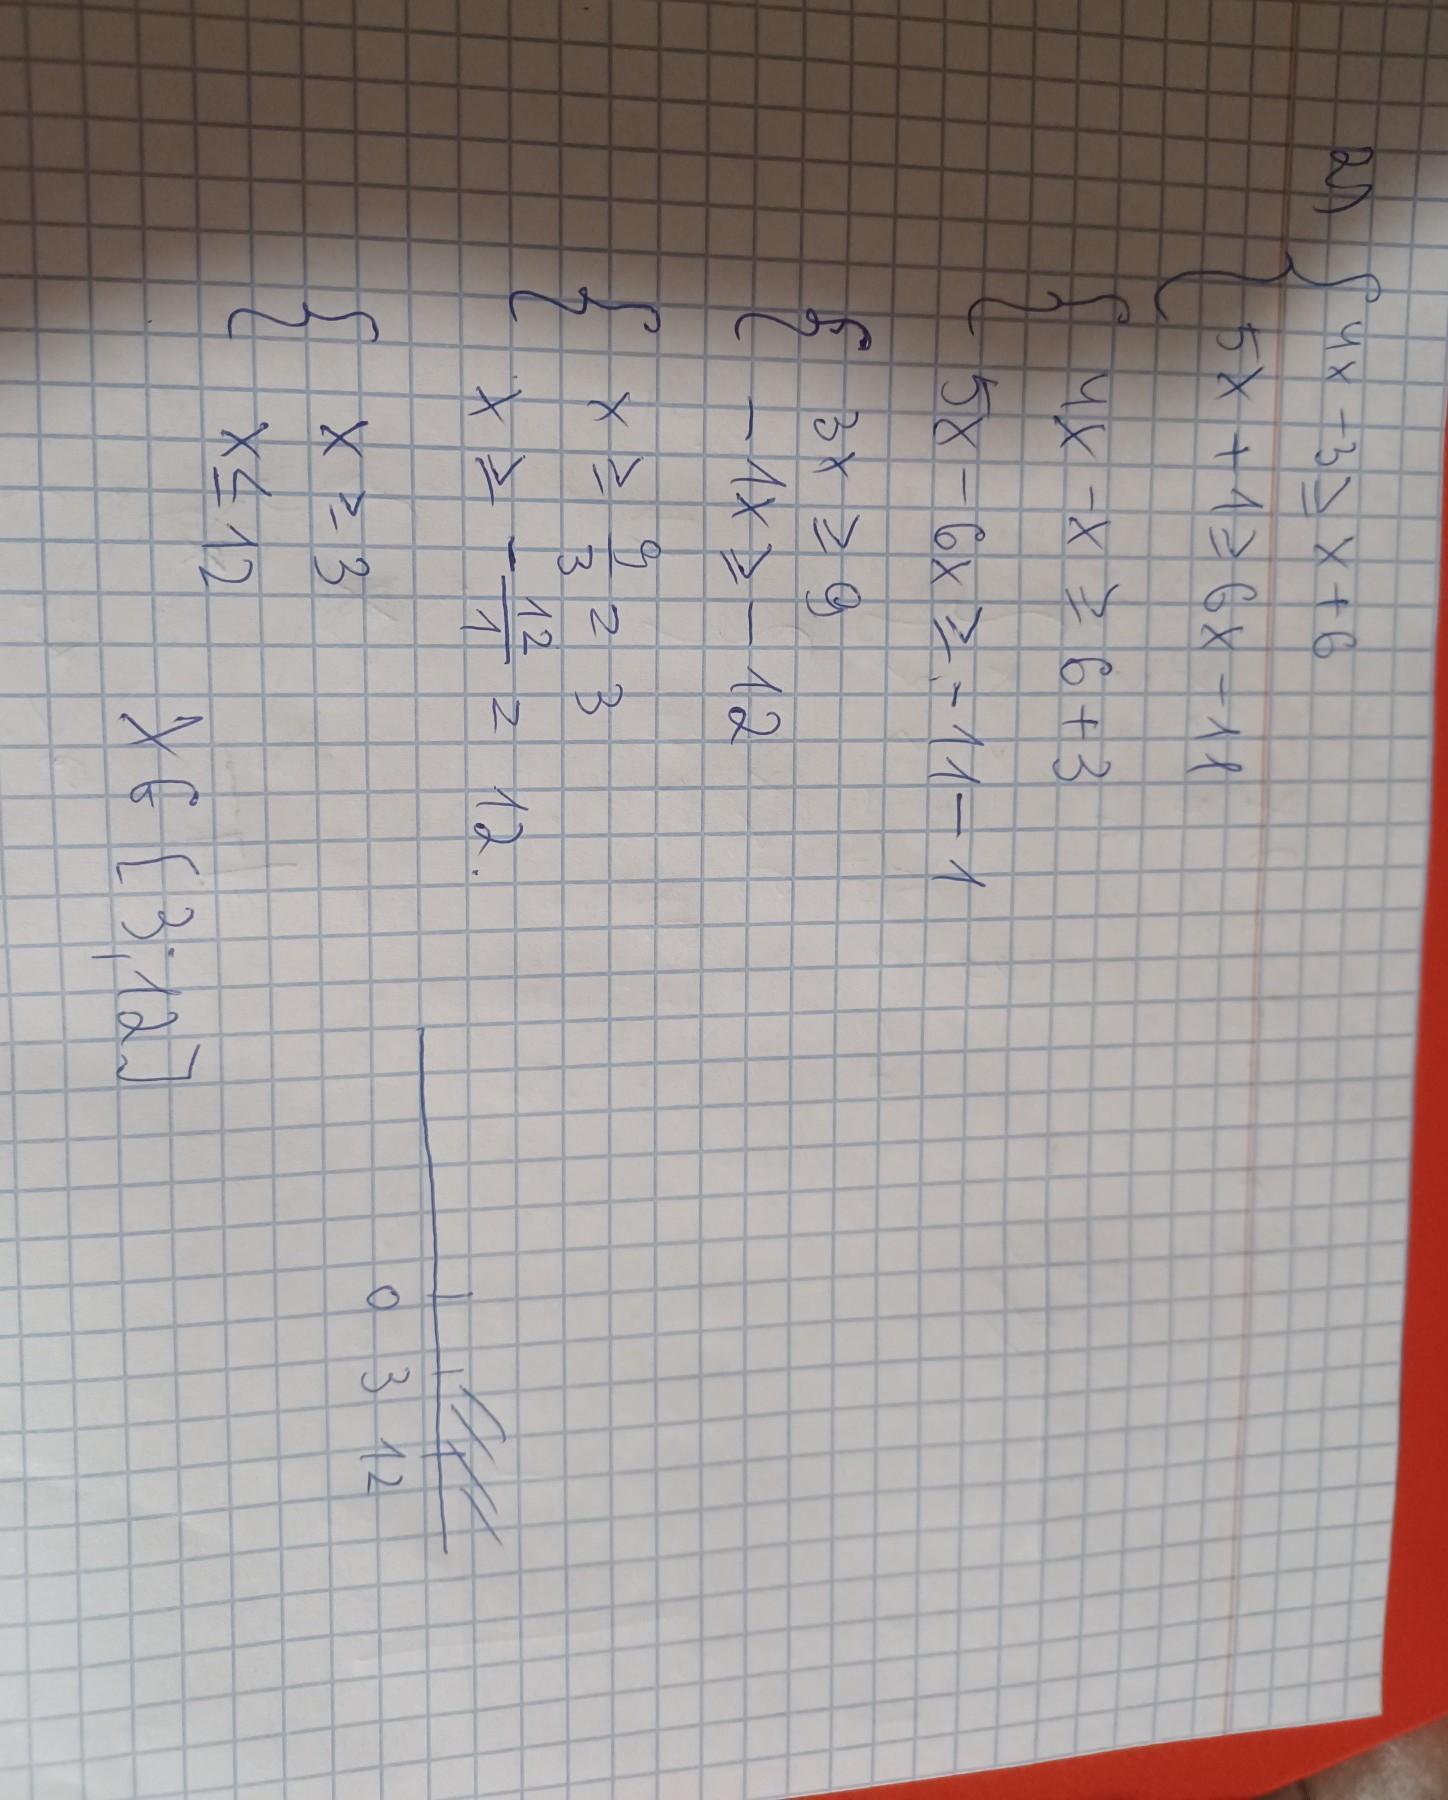 2) { 4x - 3 ≥ x + 6
{ 5x + 1 ≥ 6x - 11
{ 4x - x ≥ 6 + 3
{ 5x - 6x ≥ - 11 - 1
{ 3x ≥ 9
{ - 1x ≥ - 12
{ x ≥ 9/3 = 3
{ x ≥ - 12/1 = 12.
{ x ≥ 3
{ x ≤ 12
0 3 12
x ∈ [3; 12]